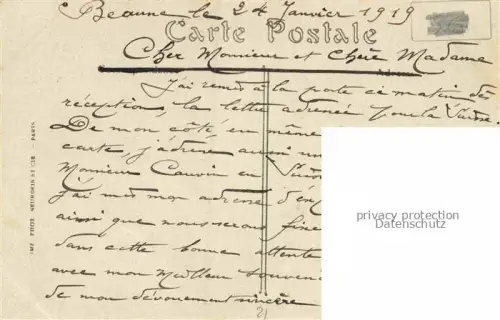 Beaune le 24 Janvier 1919
Carte Postale
Cher Monsieur et Chère Madame
J'ai remis à la poste ce matin dès
réception, la lettre adressée pour la Suisse.
De mon côté, en même
carte, j'adresse aussi un
Monsieur Cauvin en Suisse
j'ai mis mon adresse d'en
ainsi que nous serons
dans cette bonne attente
avec mon meilleur souvenir
de mon dévouement sincère
21
privacy protection
Datenschutz
IMP. PHOT. NEURDEIN ET CIE. - PARIS